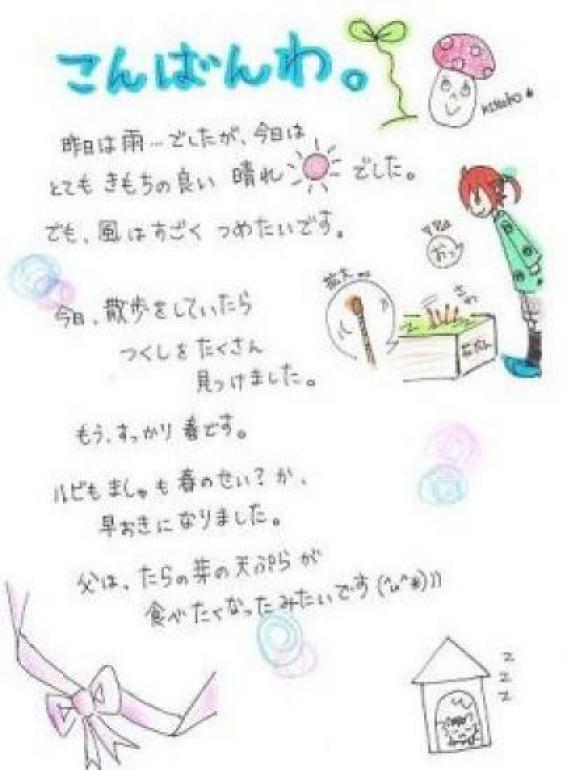 こんばんわ。
kinoko
昨日は雨…でしたが、今日は
とても きもちの良い 晴れ でした。
でも、風はすごく つめたいです。
おっ
拡大
今日、散歩をしていたら
つくしを たくさん
見つけました。
もう、すっかり 春です。
ルビも ましゅ も 春のせい？か、
早おきに なりました。
父は、たらの芽の天ぷらが
食べたくなったみたいです (^u^*)))
z
z
z